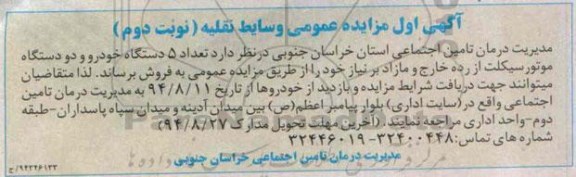 آگهی اول مزایده عمومی وسایط نقلیه (نوبت دوم)
مدیریت درمان تامین اجتماعی استان خراسان جنوبی درنظر دارد تعداد ۵ دستگاه خودرو و دو دستگاه
موتور سیکلت از رده خارج و مازاد بر نیاز خود را از طریق مزایده عمومی به فروش برساند. لذا متقاضیان
میتوانند جهت دریافت شرایط مزایده و بازدید از خودروها از تاریخ ۹۴/۸/۱۱ به مدیریت درمان تامین
اجتماعی واقع در (سایت اداری) بلوار پیامبر اعظم(ص) بین میدان آدینه و میدان سپاه پاسداران-طبقه
دوم-واحد اداری مراجعه نمایند. (آخرین مهلت تحویل مدارک ۹۴/۸/۲۷)
شماره های تماس: ۳۲۴۰۰۴۴۸-۳۲۴۴۶۰۱۹
مدیریت درمان تامین اجتماعی خراسان جنوبی
۹۴۲۴۶۱۳۲/ج